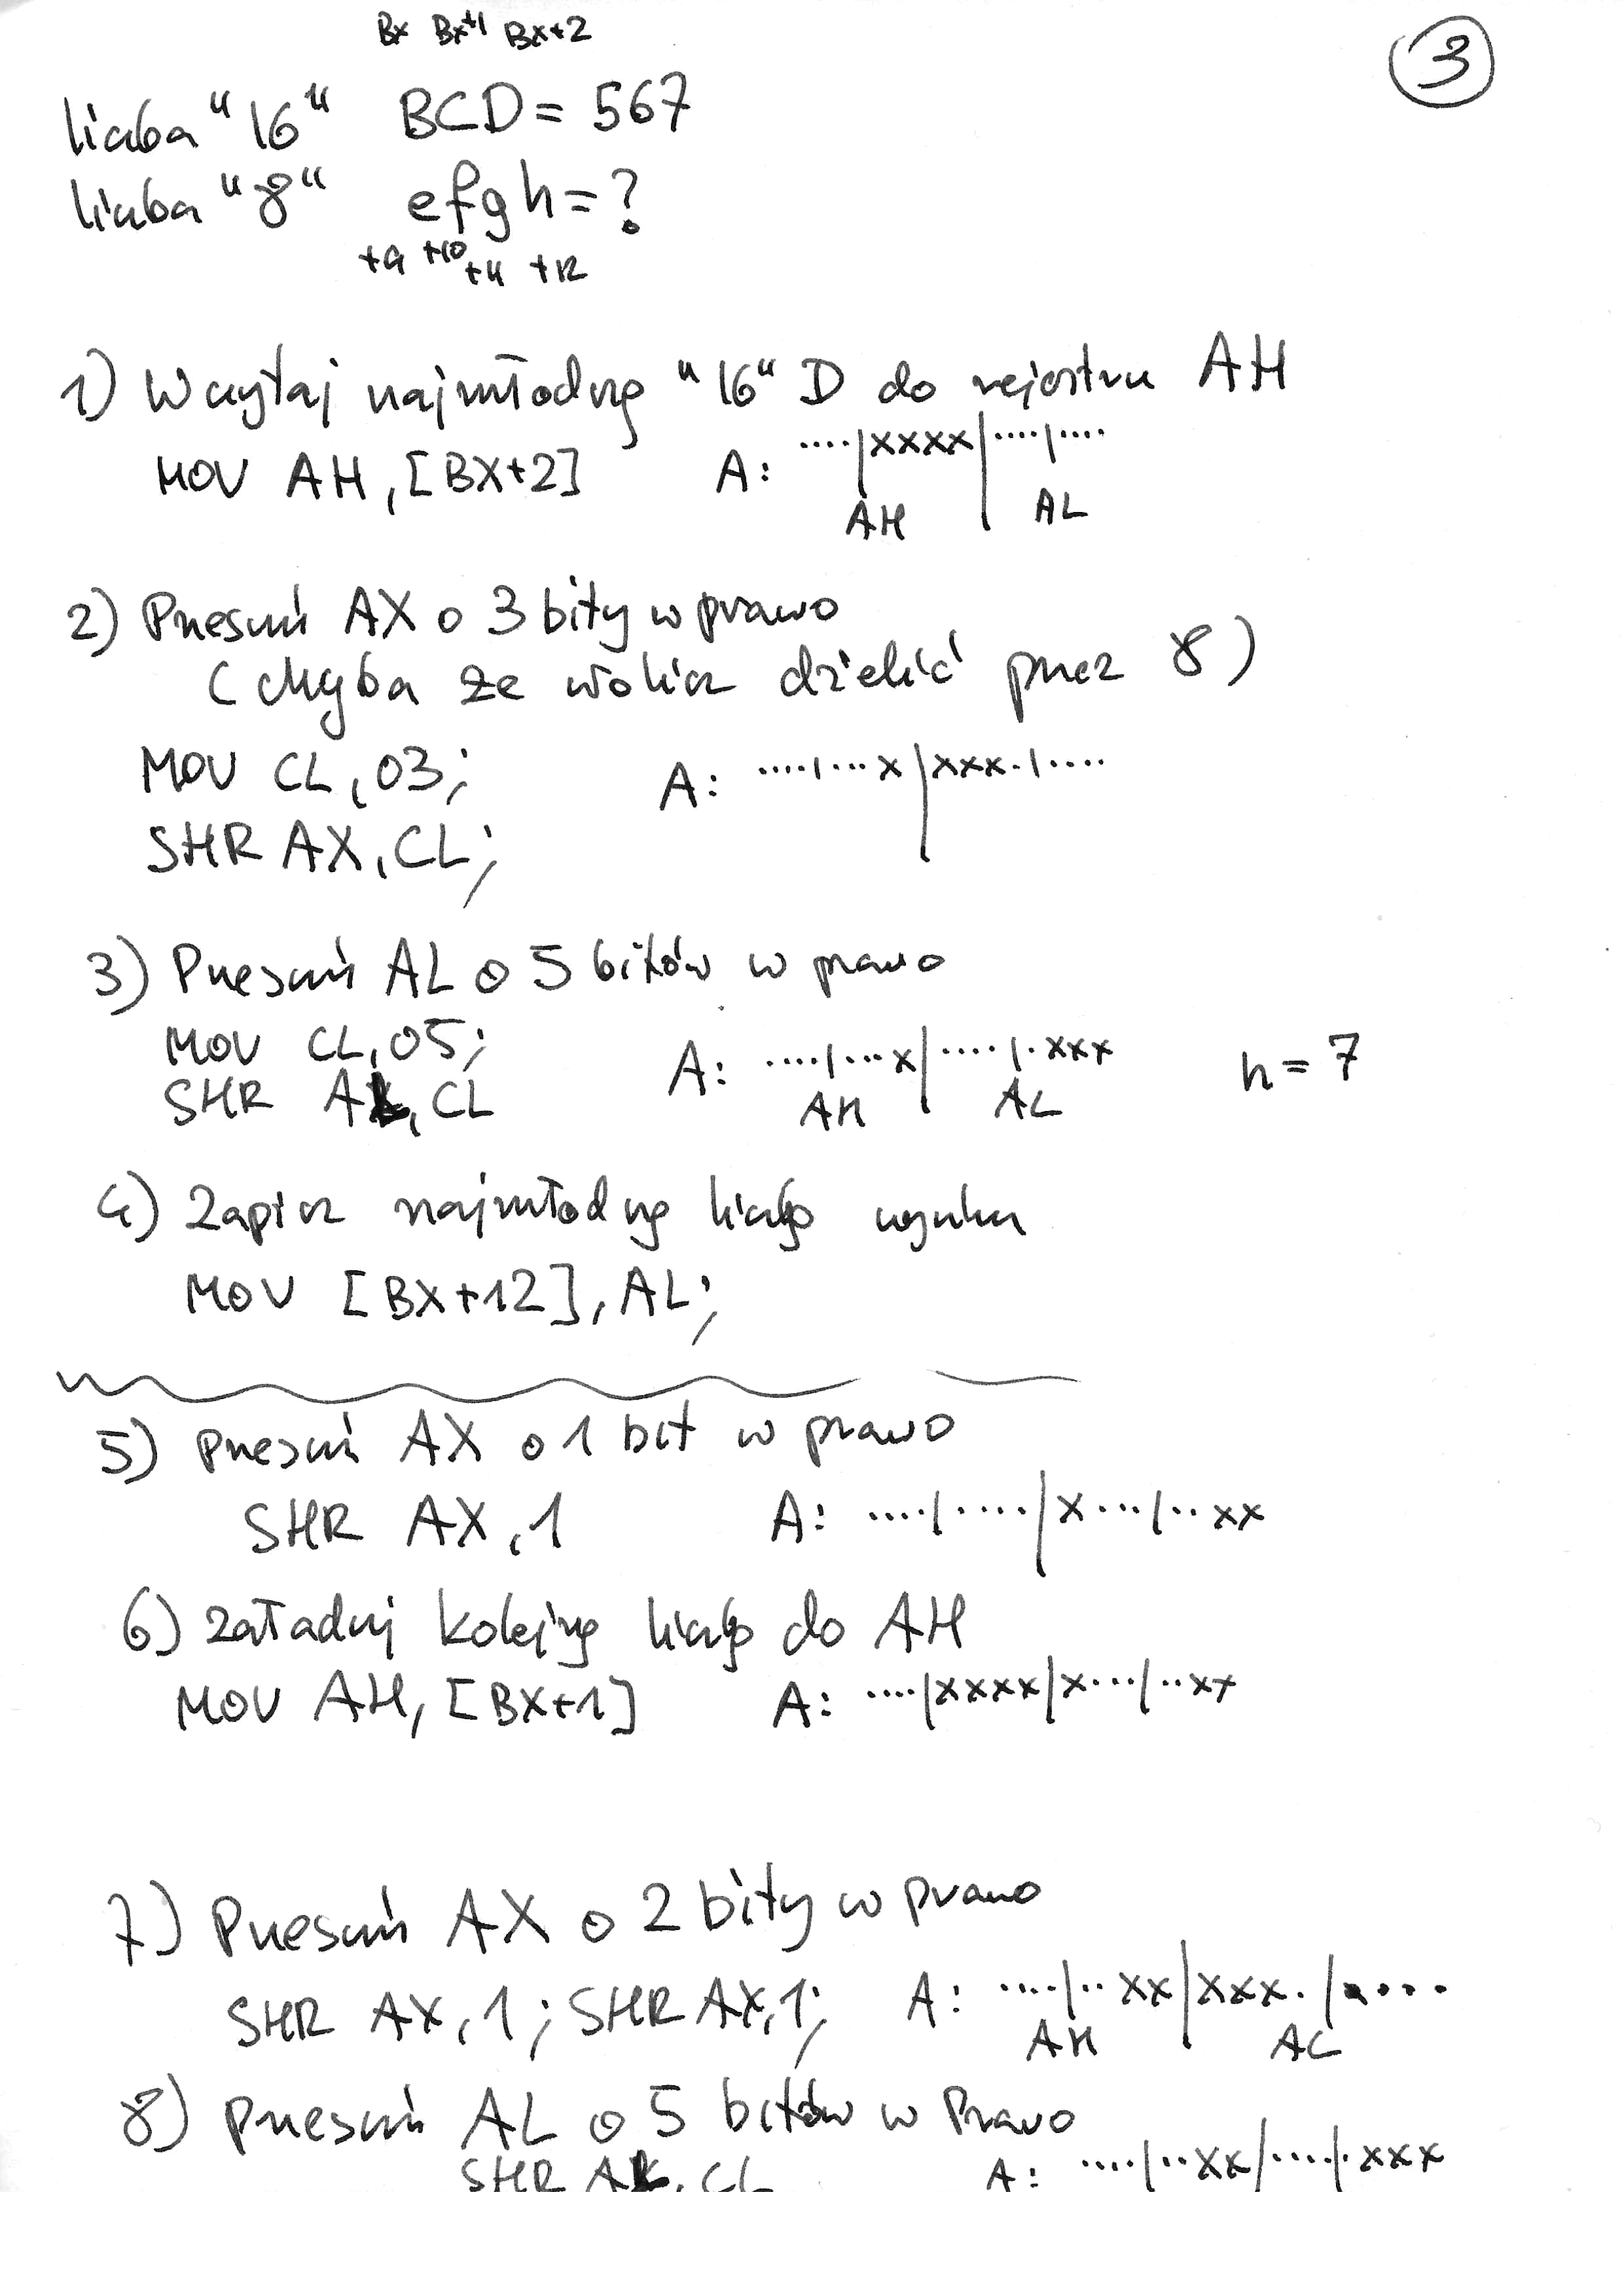 BX BX+1 BX+2
3
liczba "16" BCD = 567
liczba "8" efgh = ?
+9 +10 +11 +12
1) Wczytaj najmłodszą "16" D do rejestru AH
MOV AH, [BX+2] A: ....|xxxx|....|....
AH AL
2) Przesuń AX o 3 bity w prawo
(chyba że wolisz dzielić przez 8)
MOV CL, 03; A: ....|...x|xxx.|....
SHR AX, CL;
3) Przesuń AL o 5 bitów w prawo
MOV CL, 05; A: ....|...x|....|.xxx h = 7
SHR AL, CL AH AL
4) Zapisz najmłodszą liczbę wyniku
MOV [BX+12], AL;
5) Przesuń AX o 1 bit w prawo
SHR AX, 1 A: ....|....|x...|..xx
6) Załaduj kolejną liczbę do AH
MOV AH, [BX+1] A: ....|xxxx|x...|..xx
7) Przesuń AX o 2 bity w prawo
SHR AX, 1; SHR AX, 1; A: ....|..xx|xxx.|....
AH AL
8) Przesuń AL o 5 bitów w Prawo
SHR AL, CL A: ....|..xx|....|.xxx